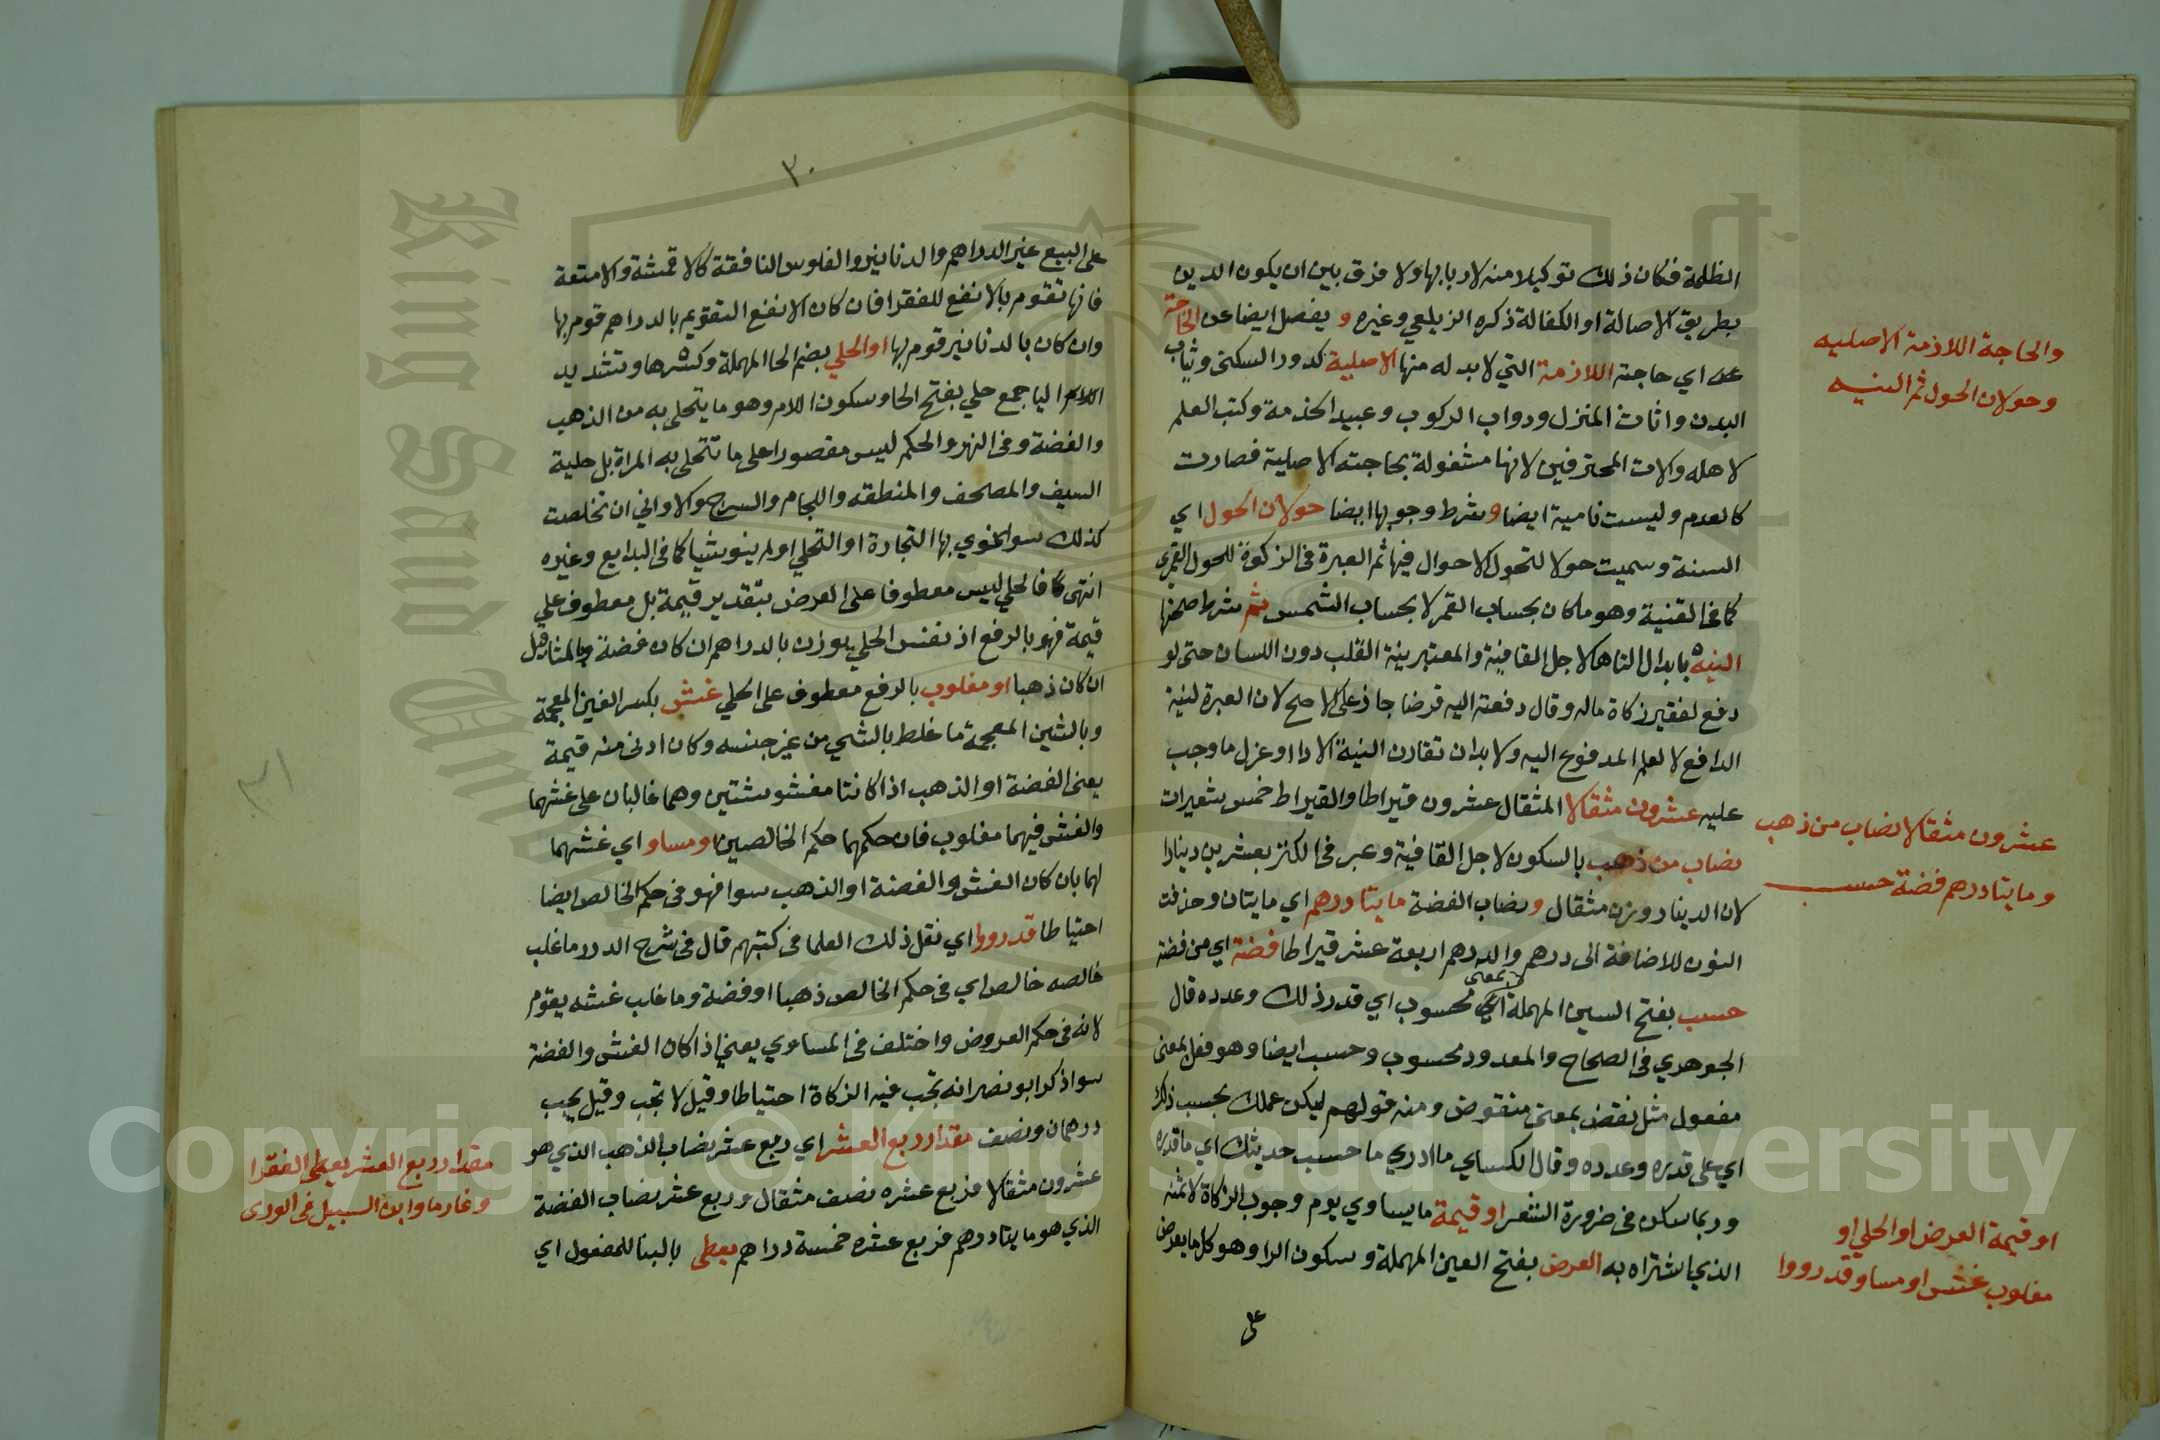 الظلمة فكان ذلك توكيلا منه لاربابها ولا فرق بين ان يكون الدين
بطريق الاصالة او الكفالة ذكره الزيلعي وغيره و يفضل ايضا عن الحاجة
عن اي حاجته اللازمة التي لا بد له منها الاصلية كدور السكنى وثياب
البدن واثاث المنزل ودواب الركوب وعبيد الخدمة وكتب العلم
لاهله والات المحترفين لانها مشغولة بحاجته الاصلية فصارت
كالعدم وليست نامية ايضا وشرط وجوبها ايضا حولان الحول اي
السنة وسميت حولا لتحول الاحوال فيها ثم العبرة في الزكوة للحول القمري
كما في القنية وهو ما كان بحساب القمر لا بحساب الشمس ثم شرط صحتها
النيه بابدال التا ها لاجل القافية والمعتبر نية القلب دون اللسان حتى لو
دفع لفقير زكاة ماله وقال دفعته اليه قرضا جاز على الاصح لان العبرة لنية
الدافع لا لعلم المدفوع اليه ولا بد ان تقارن النية الادا او عزل ما وجب
عليه عشرون مثقالا المثقال عشرون قيراطا والقيراط خمس شعيرات
نصاب من ذهب بالسكون لاجل القافية وعبر في الكنز بعشرين دينارا
لان الدينار وزن مثقال ونصاب الفضة مايتا درهم اي مايتان وحذفت
النون للاضافة الى درهم والدرهم اربعة عشر قيراطا فضة اي من فضة
حسب بفتح السين المهملة اي بمعنى محسوب اي قدر ذلك وعدده قال
الجوهري في الصحاح والمعدود محسوب وحسب ايضا وهو فعل بمعنى
مفعول مثل نفض بمعنى منفوض ومنه قولهم ليكن عملك بحسب ذلك
اي على قدره وعدده وقال الكساي ما ادري ما حسب حديثك اي ما قدره
وربما سكن في ضرورة الشعر او قيمة ما يساوي يوم وجوب الزكاة لا ثمنه
الذي اشتراه به العرض بفتح العين المهملة وسكون الرا وهو كل ما يعرض
على
والحاجة اللازمة الاصليه
وحولان الحول ثم النيه
عشرون مثقالا نصاب من ذهب
ومايتا درهم فضة حسب
او قيمة العرض او الحلي او
مغلوب غش او مساو قد رووا
٣٠
على البيع غير الدراهم والدنانير والفلوس النافقة كالاقمشة والامتعة
فانها تقوم بالانفع للفقرا فان كان الانفع التقويم بالدراهم قوم بها
وان كان بالدنانير قوم بها او الحلي بضم الحا المهملة وكسرها وتشديد
اليا جمع حلي بفتح الحا وسكون اللام وهو ما يتحلى به من الذهب
والفضة وفي النهر والحكم ليس مقصورا على ما تتحلى به المراة بل حلية
السيف والمصحف والمنطقه واللجام والسرج والاواني ان تخلصت
كذلك سوا نوي بها التجارة او التحلي او لم ينو شيا كما في البدايع وغيره
انتهى فالحلي ليس معطوفا على العرض بتقدير قيمة بل معطوف على
قيمة فهو بالرفع اذ نفس الحلي يوزن بالدراهم ان كان فضة وبالمثاقيل
ان كان ذهبا او مغلوب بالرفع معطوف على الحلي غش بكسر الغين المعجمة
وبالشين المعجمة ما غلط بالشي من غير جنسه وكان ادنى منه قيمة
يعني الفضة او الذهب اذا كانتا مغشوشتين وهما غالبان على غشهما
والغش فيهما مغلوب فان حكمهما حكم الخالصين او مساو اي غشهما
لهما بان كان الغش والفضة او الذهب سوا فهو في حكم الخالص ايضا
احتياطا قد رووا اي نقل ذلك العلما في كتبهم قال في شرح الدرر ما غلب
خالصه خالص اي في حكم الخالص ذهبا او فضة وما غلب غشه يقوم
لانه في حكم العروض واختلف في المساوي يعني اذا كان الغش والفضة
سوا ذكر ابو نصر انه تجب فيه الزكاة احتياطا وقيل لا تجب وقيل يجب
درهمان ونصف مقدار ربع العشر اي ربع عشر نصاب الذهب الذي هو
عشرون مثقالا فربع عشره نصف مثقال وربع عشر نصاب الفضة
الذي هو مايتا درهم فربع عشره خمسة دراهم يعطى بالبنا للمفعول اي
٣١
مقدار ربع العشر يعطى الفقرا
وغارما وابن السبيل في الورى
King Saud University
Copyright © King Saud University